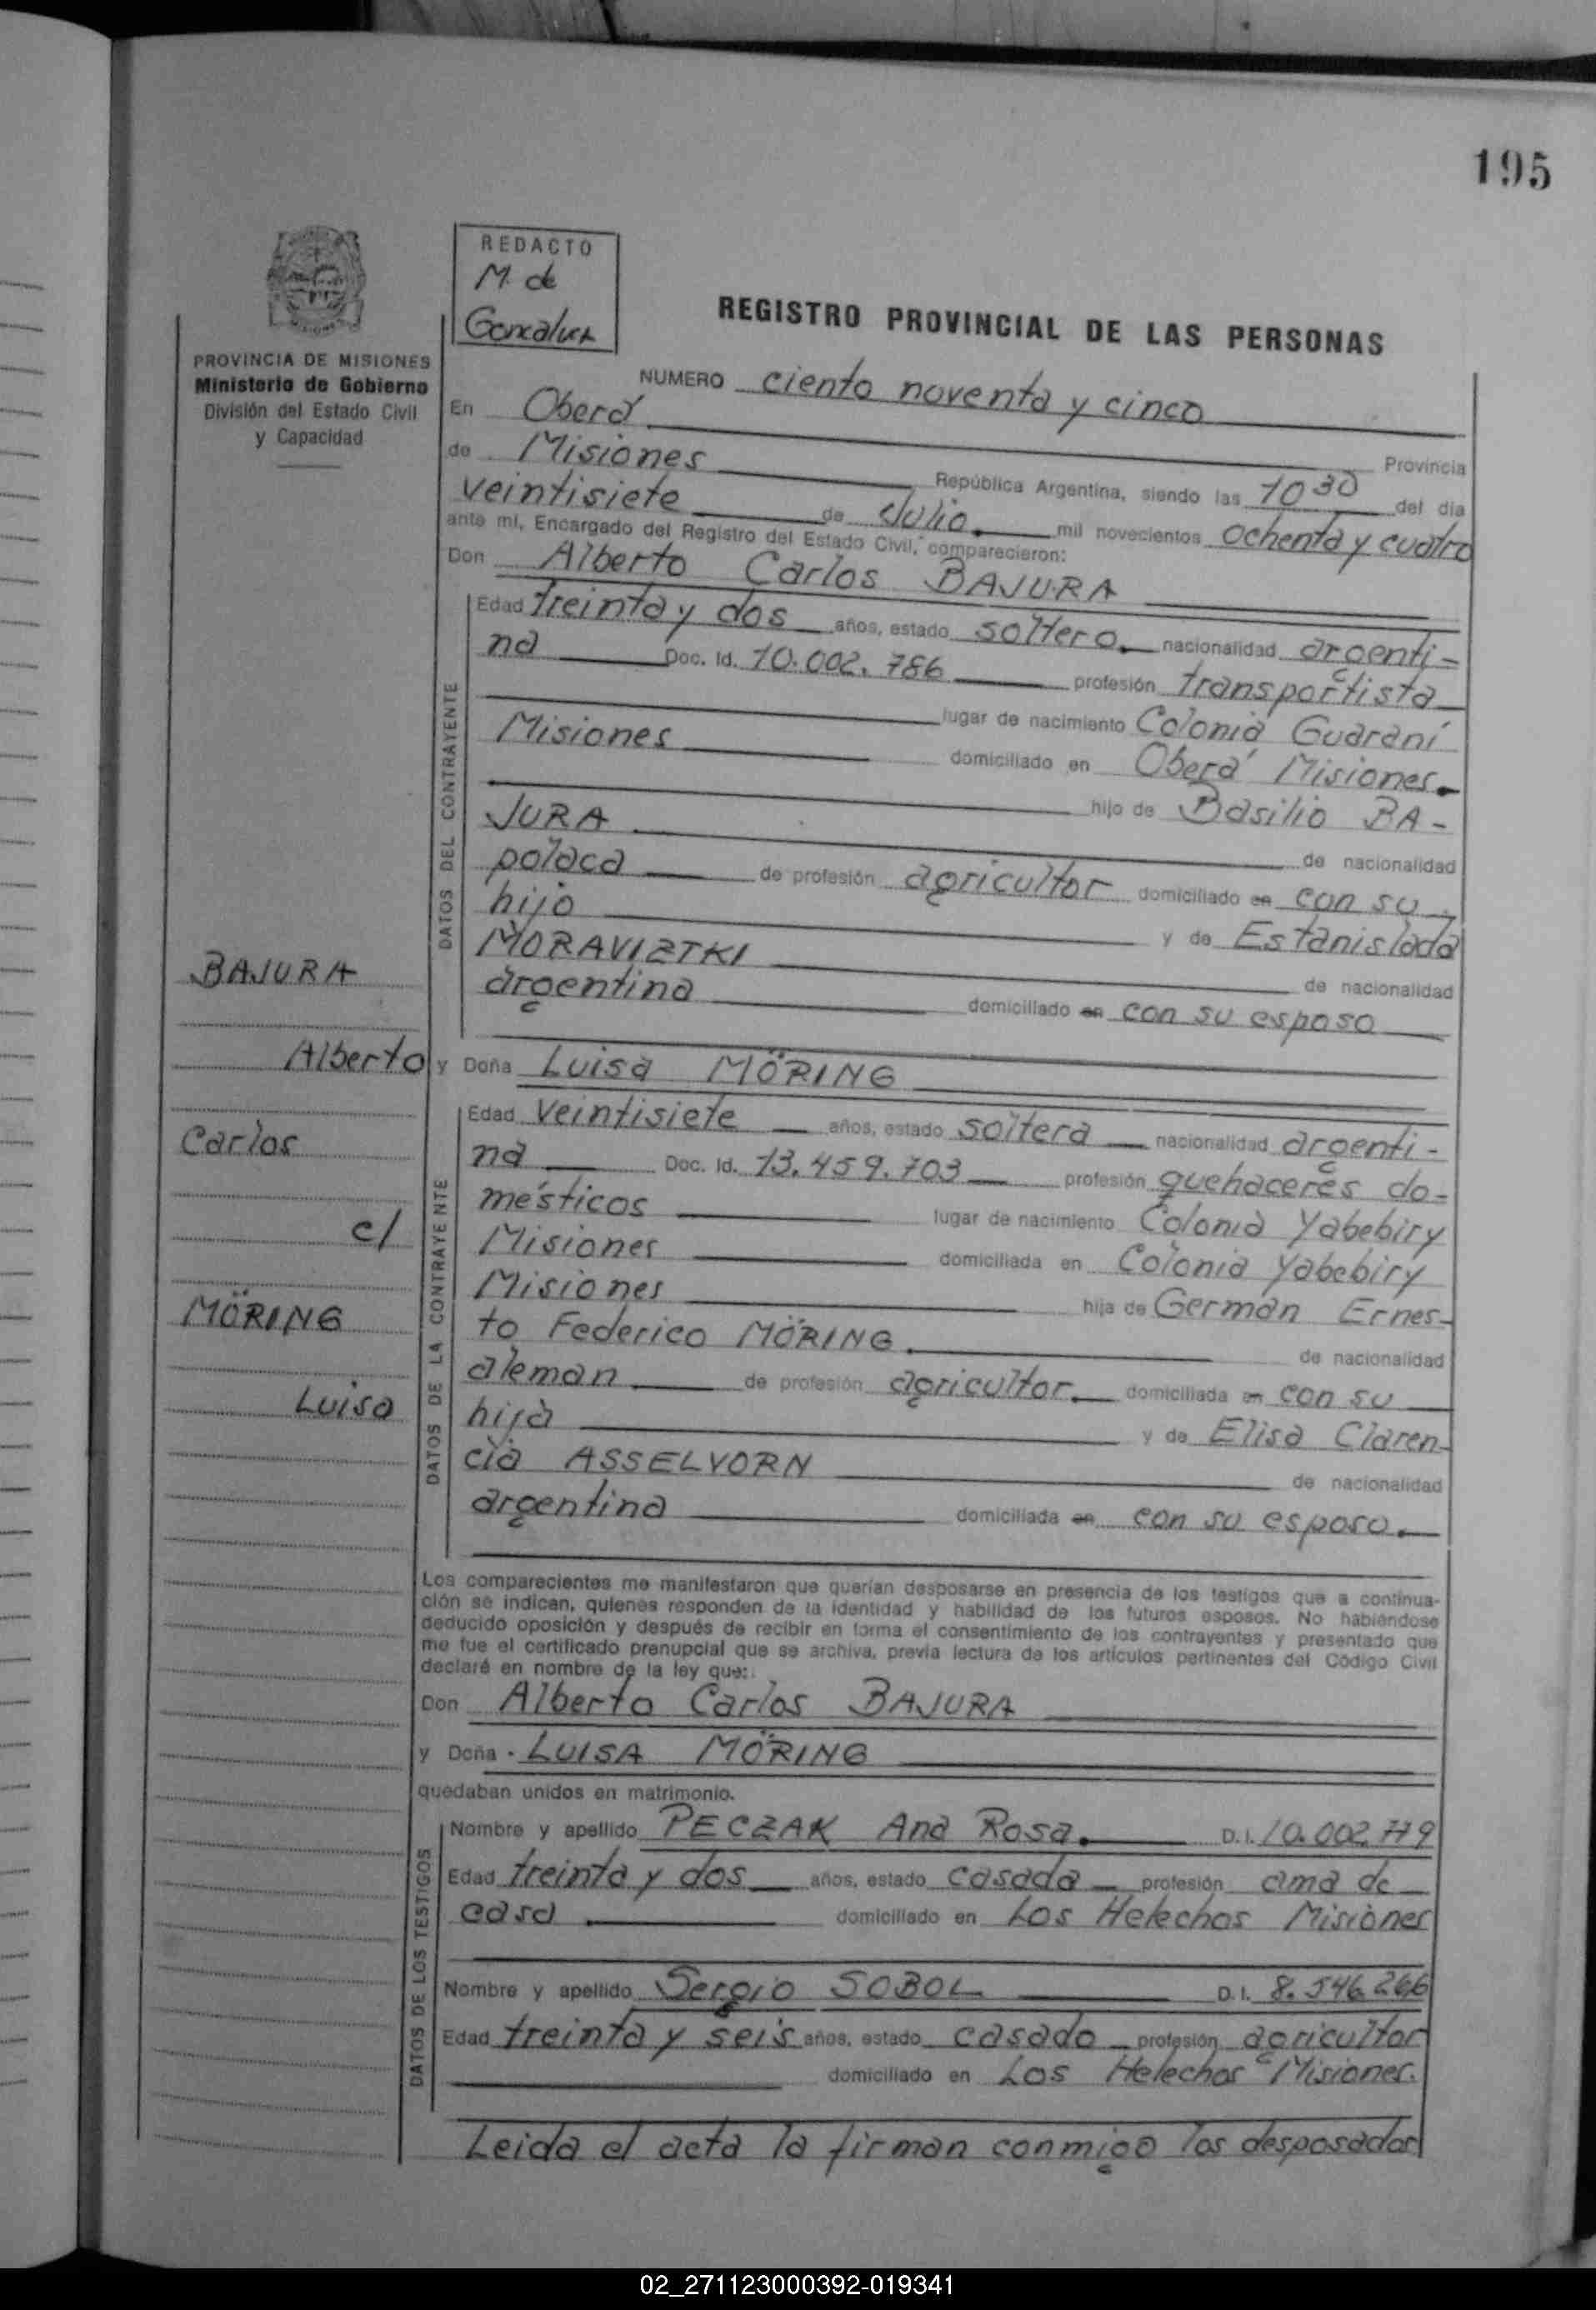 195
REDACTO
M. de
PROVINCIA DE MISIONES
Ministerio de Gobierno
División del Estado Civil
y Capacidad
REGISTRO PROVINCIAL DE LAS PERSONAS
NUMERO ciento noventa y cinco
En Oberá Provincia
de Misiones República Argentina, siendo las 10 30 del día
veintisiete de Julio. mil novecientos ochenta y cuatro
ante mí, Encargado del Registro del Estado Civil, comparecieron:
Don Alberto Carlos BAJURA
DATOS DEL CONTRAYENTE
Edad treinta y dos años, estado soltero. nacionalidad argenti-
na Doc. Id. 10.002.786 profesión transportista
lugar de nacimiento Colonia Guaraní
Misiones domiciliado en Oberá Misiones.
hijo de Basilio BA-
JURA de nacionalidad
polaca de profesión agricultor domiciliado en con su
hijo y de Estanislada
MORAVIZTKI de nacionalidad
argentina domiciliado en con su esposo
BAJURA
Alberto
Carlos
c/
MÖRING
Luisa
y Doña Luisa MÖRING
DATOS DE LA CONTRAYENTE
Edad veintisiete años, estado soltera nacionalidad argenti-
na Doc. Id. 13.459.703 profesión quehaceres do-
mésticos lugar de nacimiento Colonia Yabebiry
Misiones domiciliada en Colonia Yabebiry
Misiones hija de German Ernes-
to Federico MÖRING. de nacionalidad
aleman de profesión agricultor. domiciliada en con su
hija y de Elisa Claren-
cia ASSELVORN de nacionalidad
argentina domiciliada en con su esposo.
Los comparecientes me manifestaron que querían desposarse en presencia de los testigos que a continua-
ción se indican, quienes responden de la identidad y habilidad de los futuros esposos. No habiéndose
deducido oposición y después de recibir en forma el consentimiento de los contrayentes y presentado que
me fue el certificado prenupcial que se archiva, previa lectura de los artículos pertinentes del Código Civil
declaré en nombre de la ley que:
Don Alberto Carlos BAJURA
y Doña LUISA MÖRING
quedaban unidos en matrimonio.
DATOS DE LOS TESTIGOS
Nombre y apellido PECZAK Ana Rosa. D.I. 10.002.779
Edad treinta y dos años, estado casada profesión ama de
casa domiciliado en Los Helechos Misiones
Nombre y apellido Sergio SOBOL D.I. 8.546.266
Edad treinta y seis años, estado casado profesión agricultor
domiciliado en Los Helechos Misiones.
Leida el acta la firman conmigo los desposados
02_271123000392-019341